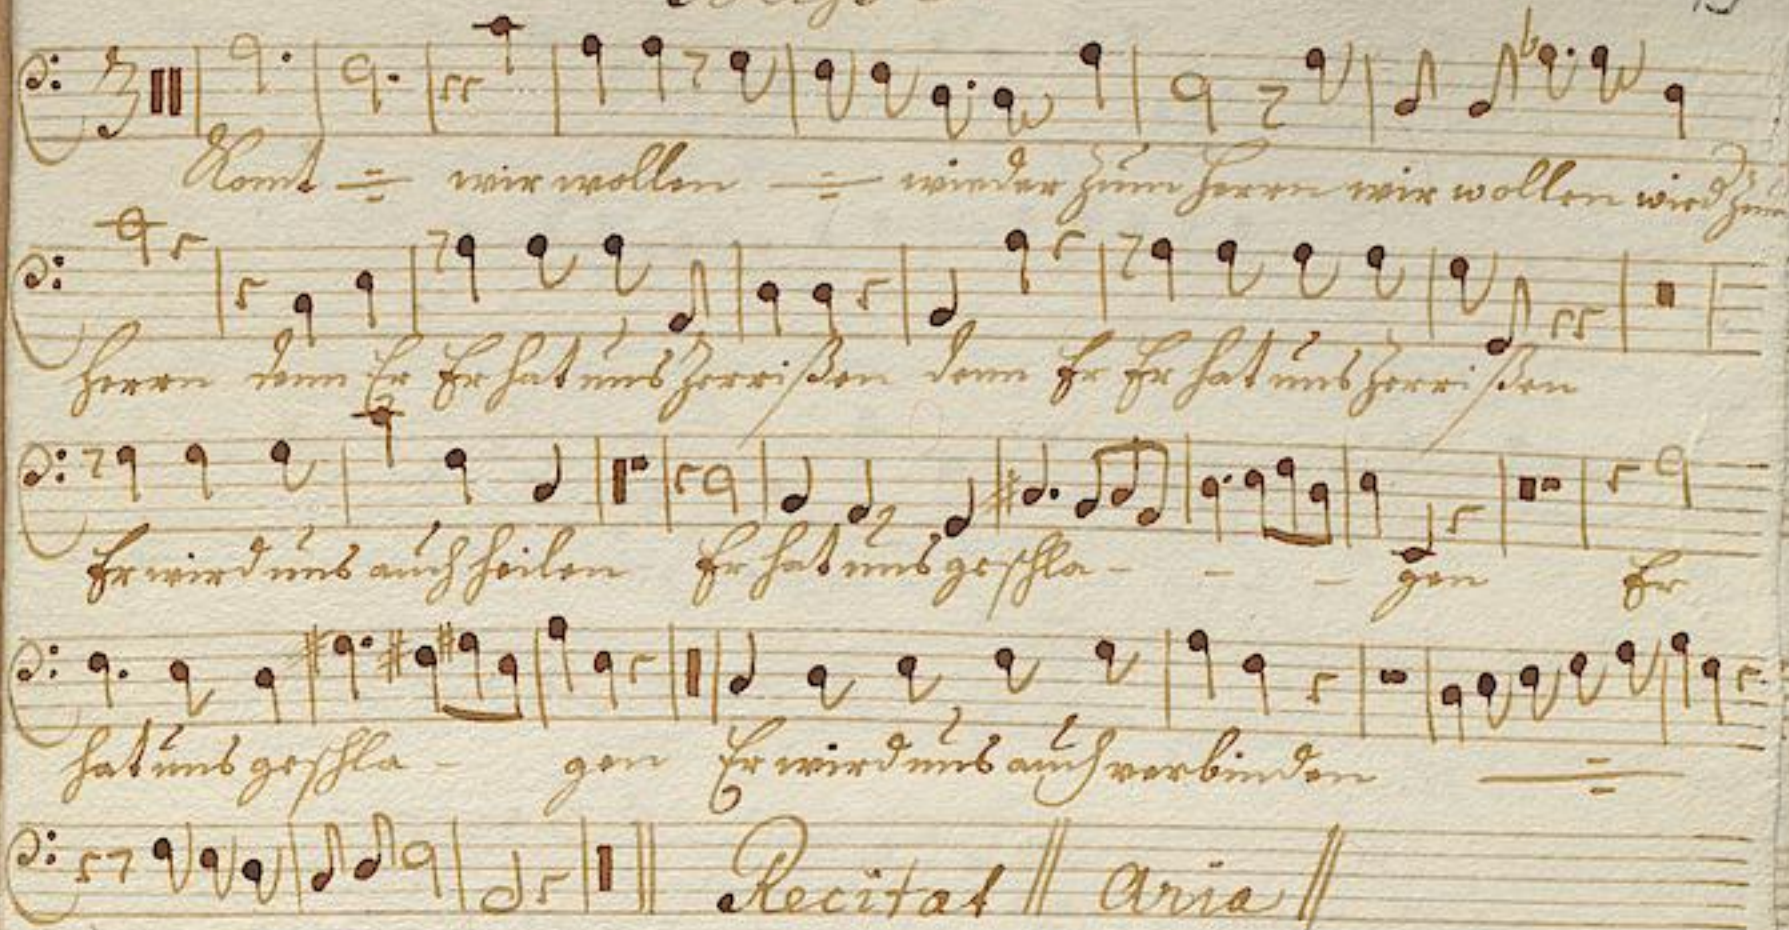 Komt wir wollen wieder zum Herrn wir wollen wied zum
Herrn denn Er Er hat uns zerrißen denn Er Er hat uns zerrißen
Er wird uns auch heilen Er hat uns geschla- - - gen Er
hat uns geschla- gen Er wird uns auch verbinden
Recitat Aria